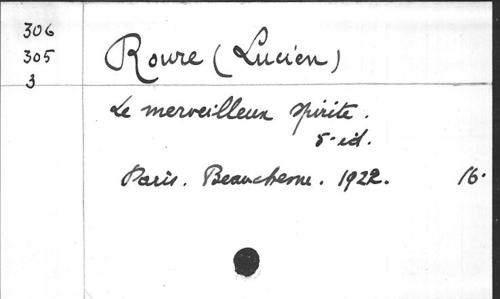 306
305
3
Roure (Lucien)
Le merveilleux spirite.
5e ed.
Paris. Beauchesne. 1922. 16.